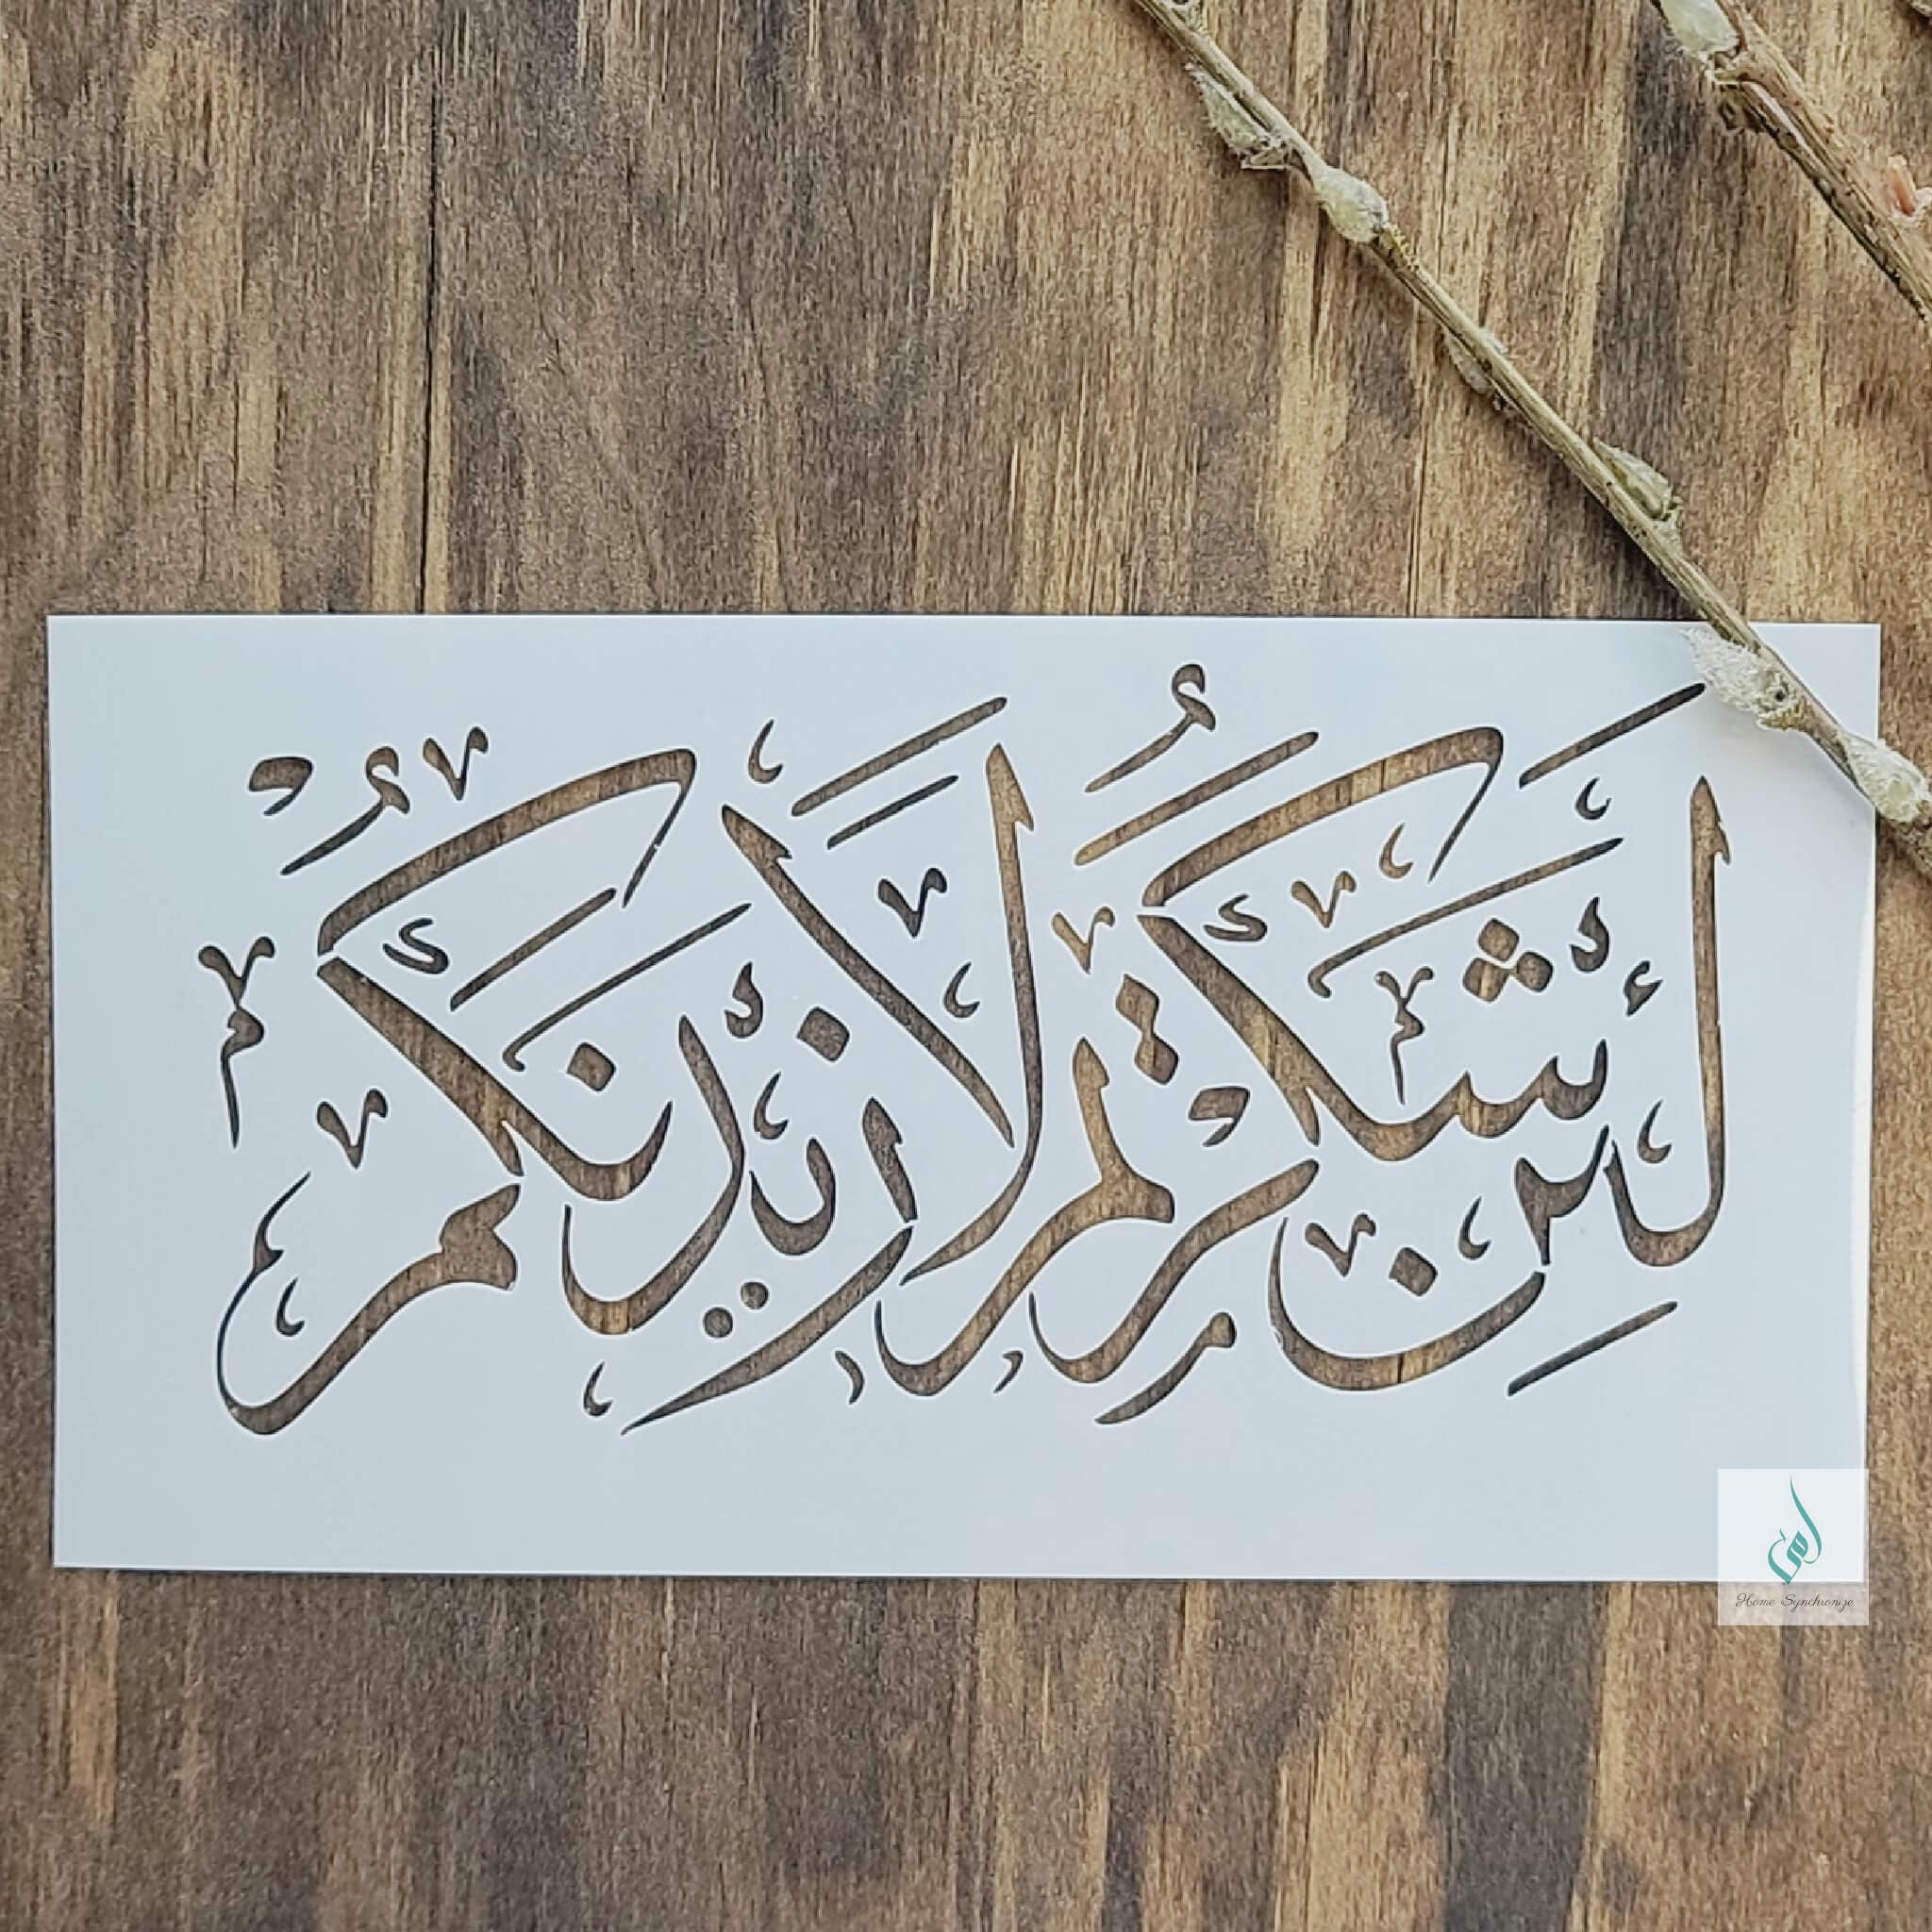 لَئِن شَكَرْتُمْ لَأَزِيدَنَّكُمْ
Home Synchronize